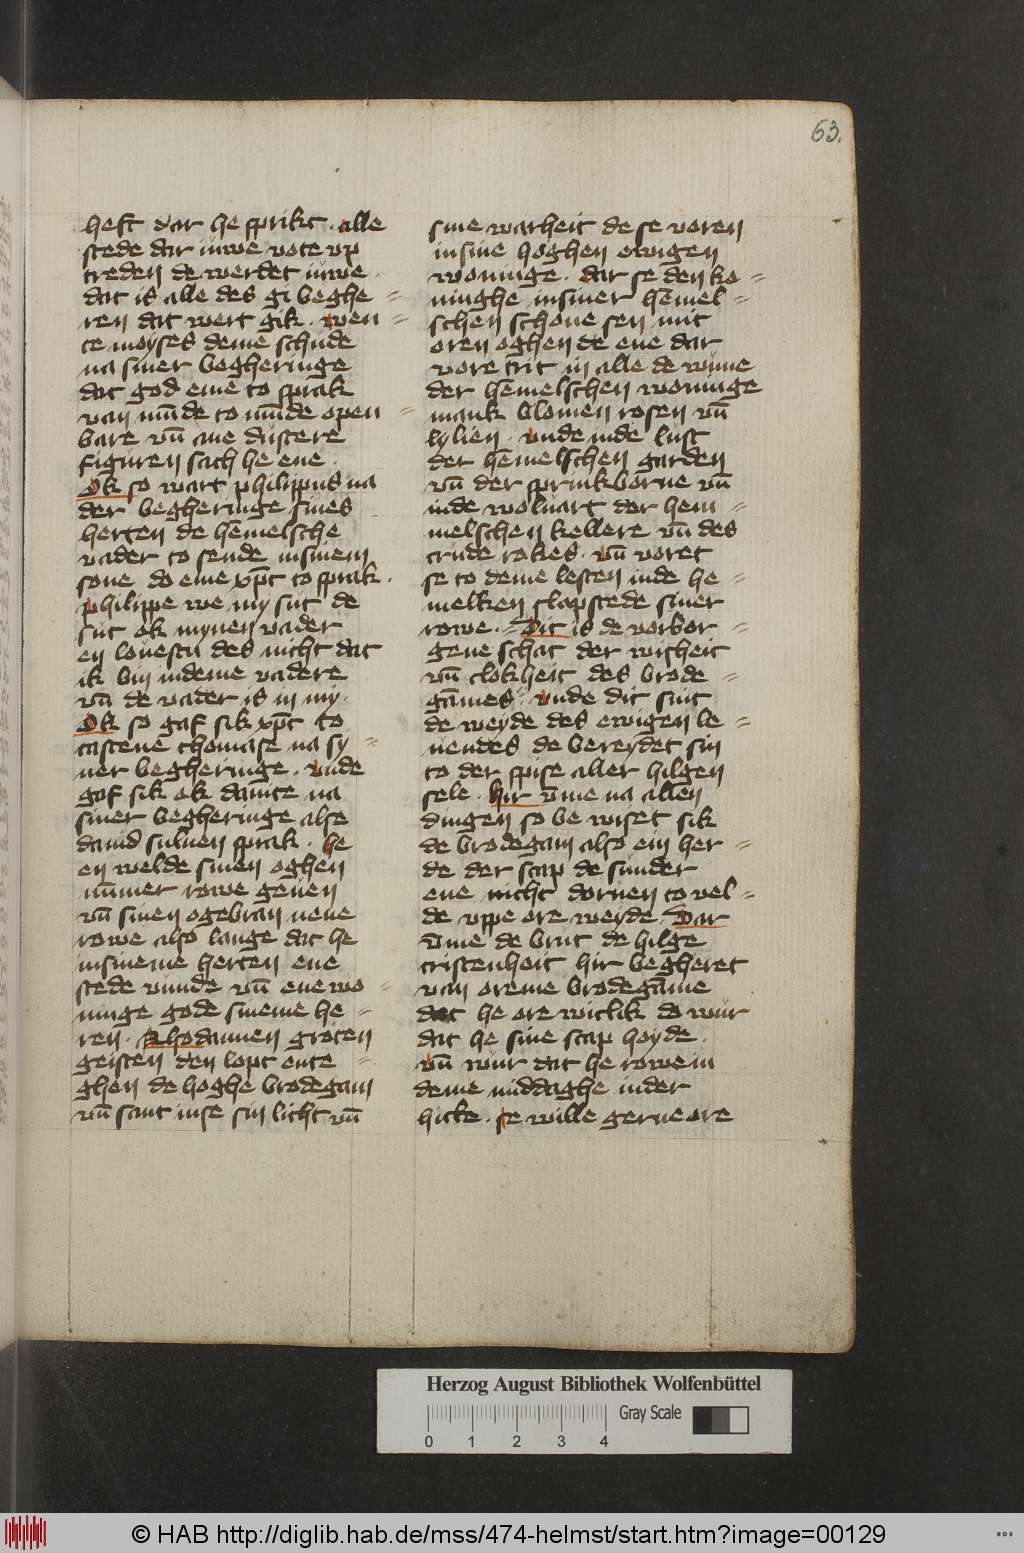 63.
heft dar he sprikt · alle
stede dar iuwe vote vp
treden de werdet iuwe ·
dat is alle des gi beghe =
ren dat wert gik · wen =
te moyses deme schude
na siner begheringe
dat god eme to sprak
van mūde to mūde open =
bare vn̄ ane dustere
figuren sach he ene ·
Ok so wart philippus na
der begheringe sines
herten de hēmelsche
vader to sende insinem
sone do eme xp̄c to sprak ·
philippe we my sut de
sut ok mynen vader
en louestu des nicht dat
ik bin indeme vadere
vn̄ de vader is in my ·
Ok so gaf sik xp̄c to
tastene thomase na sy =
ner begheringe · vnde
gaf sik ok dauite na
siner begheringe alse
dauid suluen sprak · he
en welde sinen oghen
nūmer rowe geuen
vn̄ sinen ogebran nene
rowe also lange dat he
insineme herten ene
stede vunde vn̄ ene wo =
ninge gode sineme he =
ren · Alsodannen groten
geisten den lopt ente =
ghen de hoghe brodegam
vn̄ sant iuse sin licht vn̄
sine warheit de se voren
insine hoghen ewigen
woninge · dar se den ko =
ninghe insiner hēmel =
schen schone sen mit
oren oghen de ene dar
vore trit in alle de wūne
der hēmelschen woninge
mank blomen rosen vn̄
lylien · vnde inde lust
der hēmelschen garden
vn̄ der sprinkborne vn̄
inde woluart der hem =
melschen kellere vn̄ des
crude rokes · vn̄ voret
se to deme lesten inde he =
melken slapstede siner
rowe · = Dit is de vorbor =
gene schat der wisheit
vn̄ clokheit des brode =
gāmes · vnde dit sint
de weyde des ewigen le =
uendes de bereydet sin
to der spise aller hilgen
sele · hir v̄me na allen
dingen so be wiset sik
de brodegam also ein her =
de der scap de sunder
ene nicht doruen to vel =
de vppe ore weyde · Dar
v̄me de brut de hilge
cristenheit hir begheret
van oreme brodegāme
dat he ore witlik do wur
dat he sine scap hoyde ·
vn̄ wur dat he rowe in
deme middaghe inder
hicte · se wille gerne ore
Herzog August Bibliothek Wolfenbüttel
Gray Scale
0 1 2 3 4
© HAB http://diglib.hab.de/mss/474-helmst/start.htm?image=00129
WDB